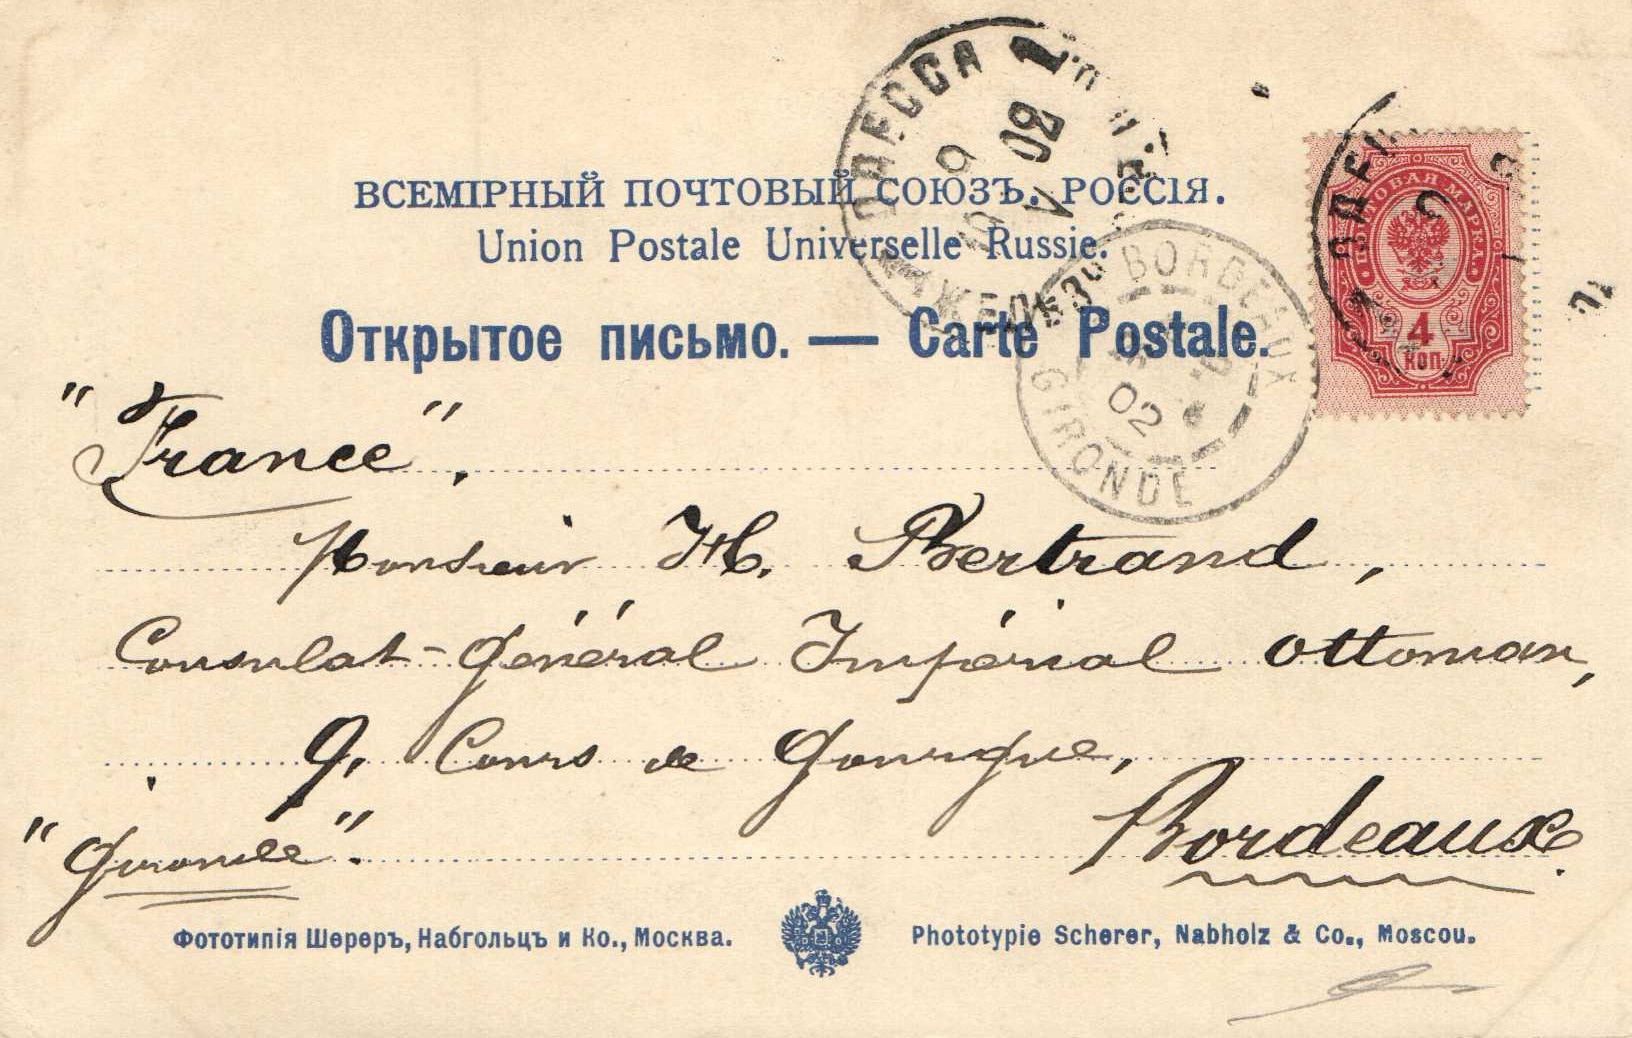 ОДЕССА
9 V 02
ВСЕМІРНЫЙ ПОЧТОВЫЙ СОЮЗЪ. РОССІЯ.
Union Postale Universelle Russie.
Открытое письмо. — Carte Postale.
ПОЧТОВАЯ МАРКА
4
КОП.
BORDEAUX
02
GIRONDE
"France",
Monsieur H. Bertrand,
Consulat-Général Impérial Ottoman,
9, Cours de Gourgue,
Bordeaux.
"Gironde".
Фототипія Шереръ, Набгольцъ и Ко., Москва.
Phototypie Scherer, Nabholz & Co., Moscou.